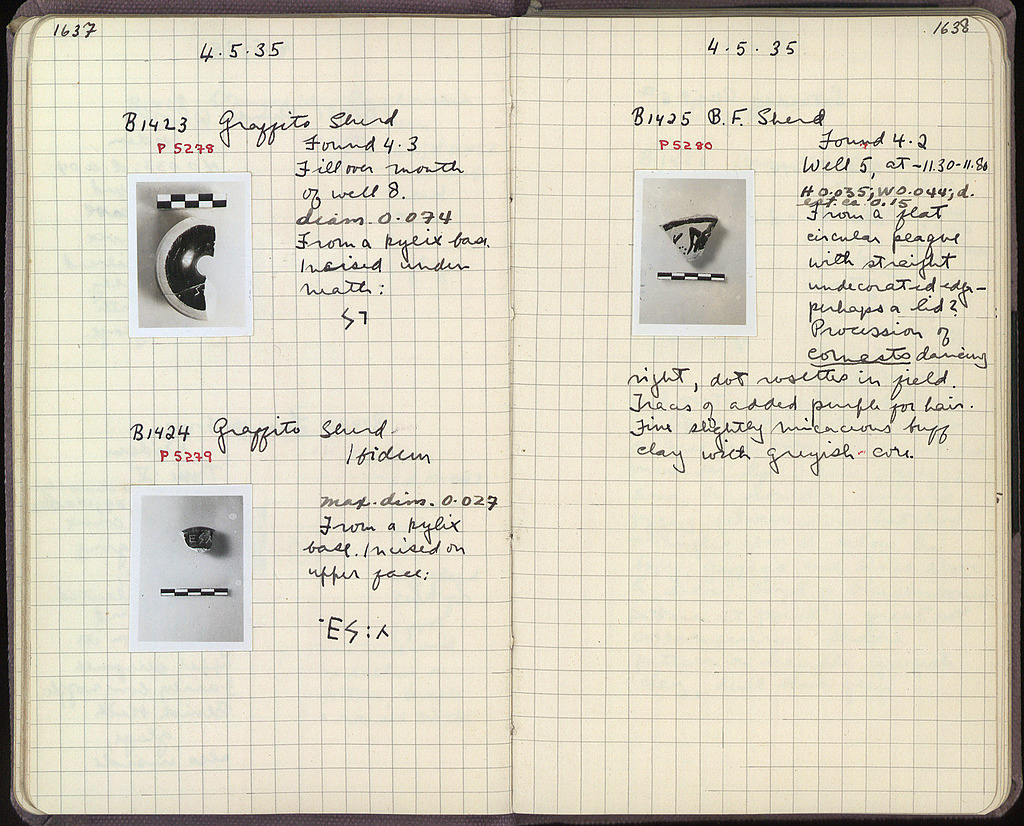 1637
4.5.35
B1423 Graffito Sherd
P 5278
Found 4.3
Fill over mouth
of well 8.
diam. 0.074
From a kylix base.
Incised under
neath:
B1424 Graffito Sherd
P 5279
Ibidem
max. dim. 0.027
From a kylix
base. Incised on
upper face:
1638
4.5.35
B1425 B.F. Sherd
P 5280
Found 4.2
Well 5, at -11.30-11.80
H 0.035; W 0.044; d.
est. ca. 0.15
From a flat
circular plaque
with straight
undecorated edge-
perhaps a lid?
Procession of
comasts dancing
right, dot rosettes in field.
Traces of added purple for hair.
Fine slightly micaceous buff
clay with greyish core.